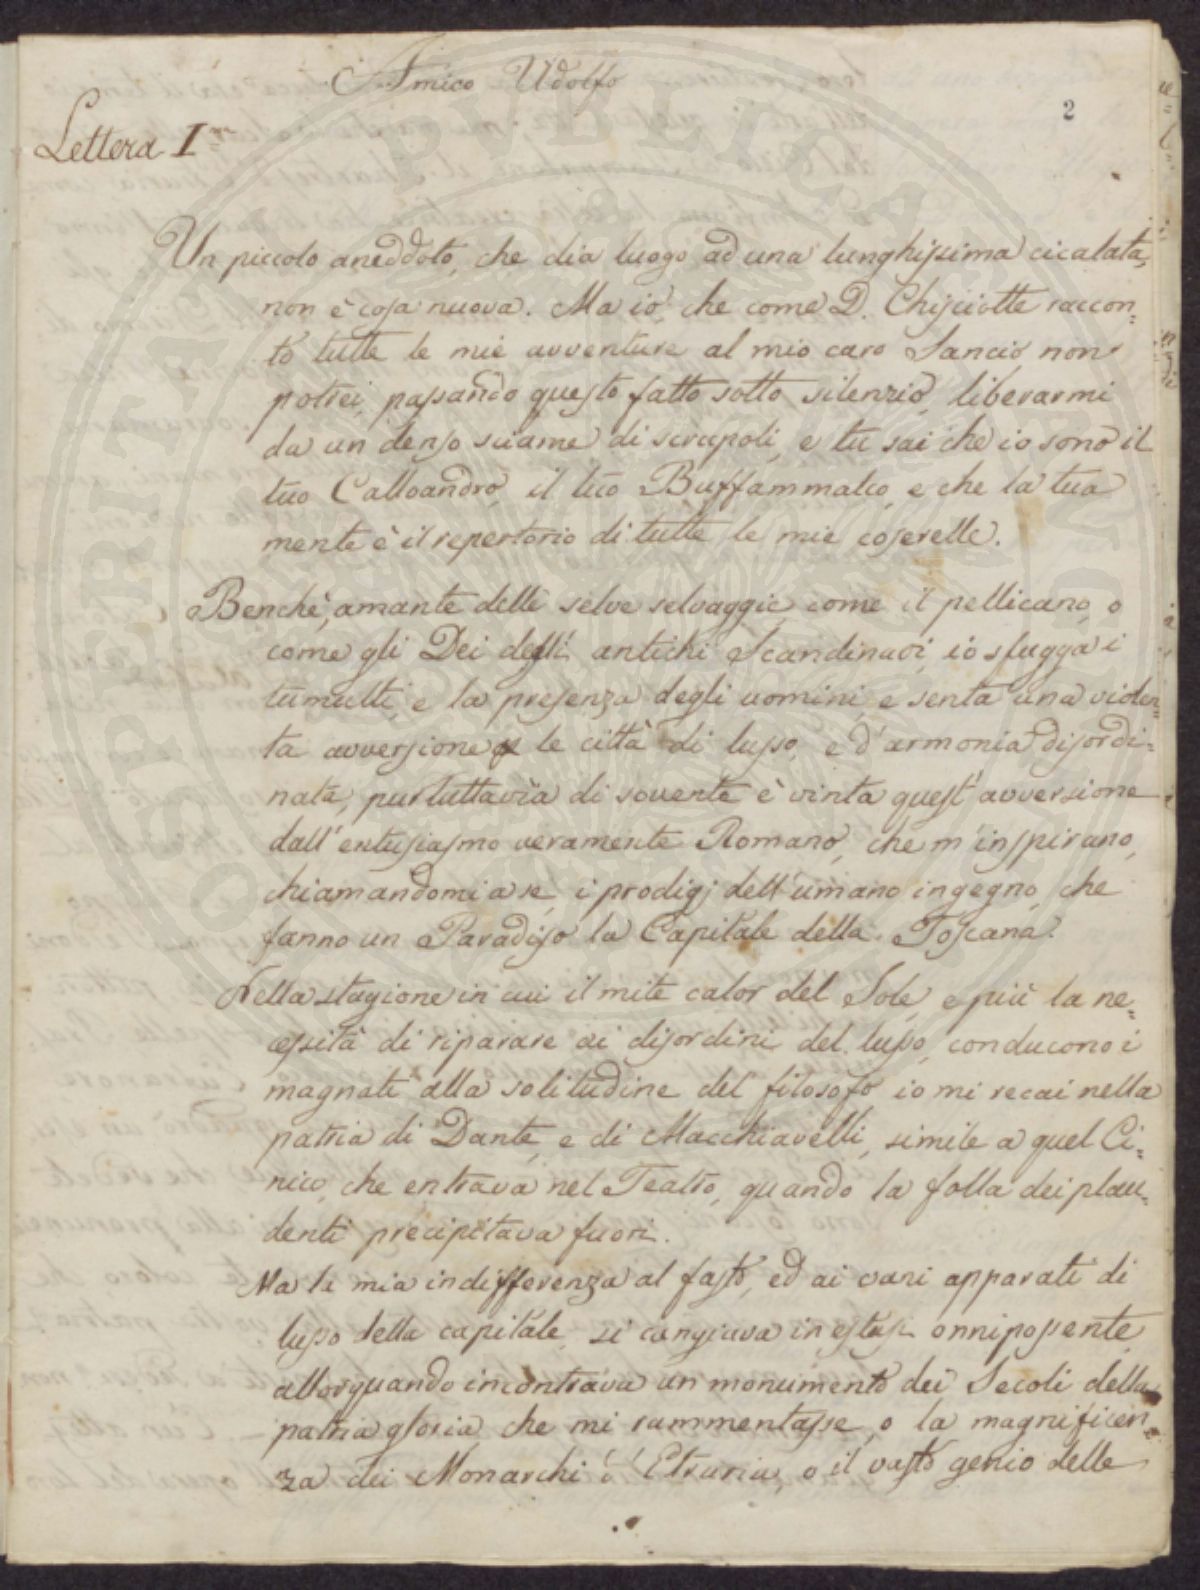 Amico Udolfo
2
Lettera I.ma
Un piccolo aneddoto, che dia luogo ad una lunghissima cicalata,
non è cosa nuova. Ma io, che come D. Chisciotte raccon=
to tutte le mie avventure al mio caro Sancio non
potrei, passando questo fatto sotto silenzio, liberarmi
da un denso sciame di scrupoli, e tu sai che io sono il
tuo Calloandro, il tuo Buffammalco, e che la tua
mente è il repertorio di tutte le mie coserelle.
Benchè, amante delle selve selvaggie, come il pellicano, o
come gli Dei degli antichi Scandinavi, io sfugga i
tumulti, e la presenza degli uomini, e senta una violen=
ta avversione le città di lusso, e d'armonia disordi=
nata, purtuttavia di sovente è vinta quest'avversione
dall'entusiasmo veramente Romano, che m'inspirano,
chiamandomi a se, i prodigj dell'umano ingegno, che
fanno un Paradiso la Capitale della Toscana.
Nella stagione in cui il mite calor del Sole, e più la ne=
cessità di riparare ai disordini del lusso, conducono i
magnati alla solitudine del filosofo, io mi recai nella
patria di Dante, e di Macchiavelli, simile a quel Ci=
nico, che entrava nel Teatro, quando la folla dei plau=
denti precipitava fuori.
Ma la mia indifferenza al fasto, ed ai vani apparati di
lusso della capitale, si cangiava in estasi onnipossente,
allorquando incontrava un monumento dei Secoli della
patria gloria, che mi rammentasse, o la magnificen=
za dei Monarchi d'Etruria, o il vasto genio delle
PROSPERITATI PUBLICAE